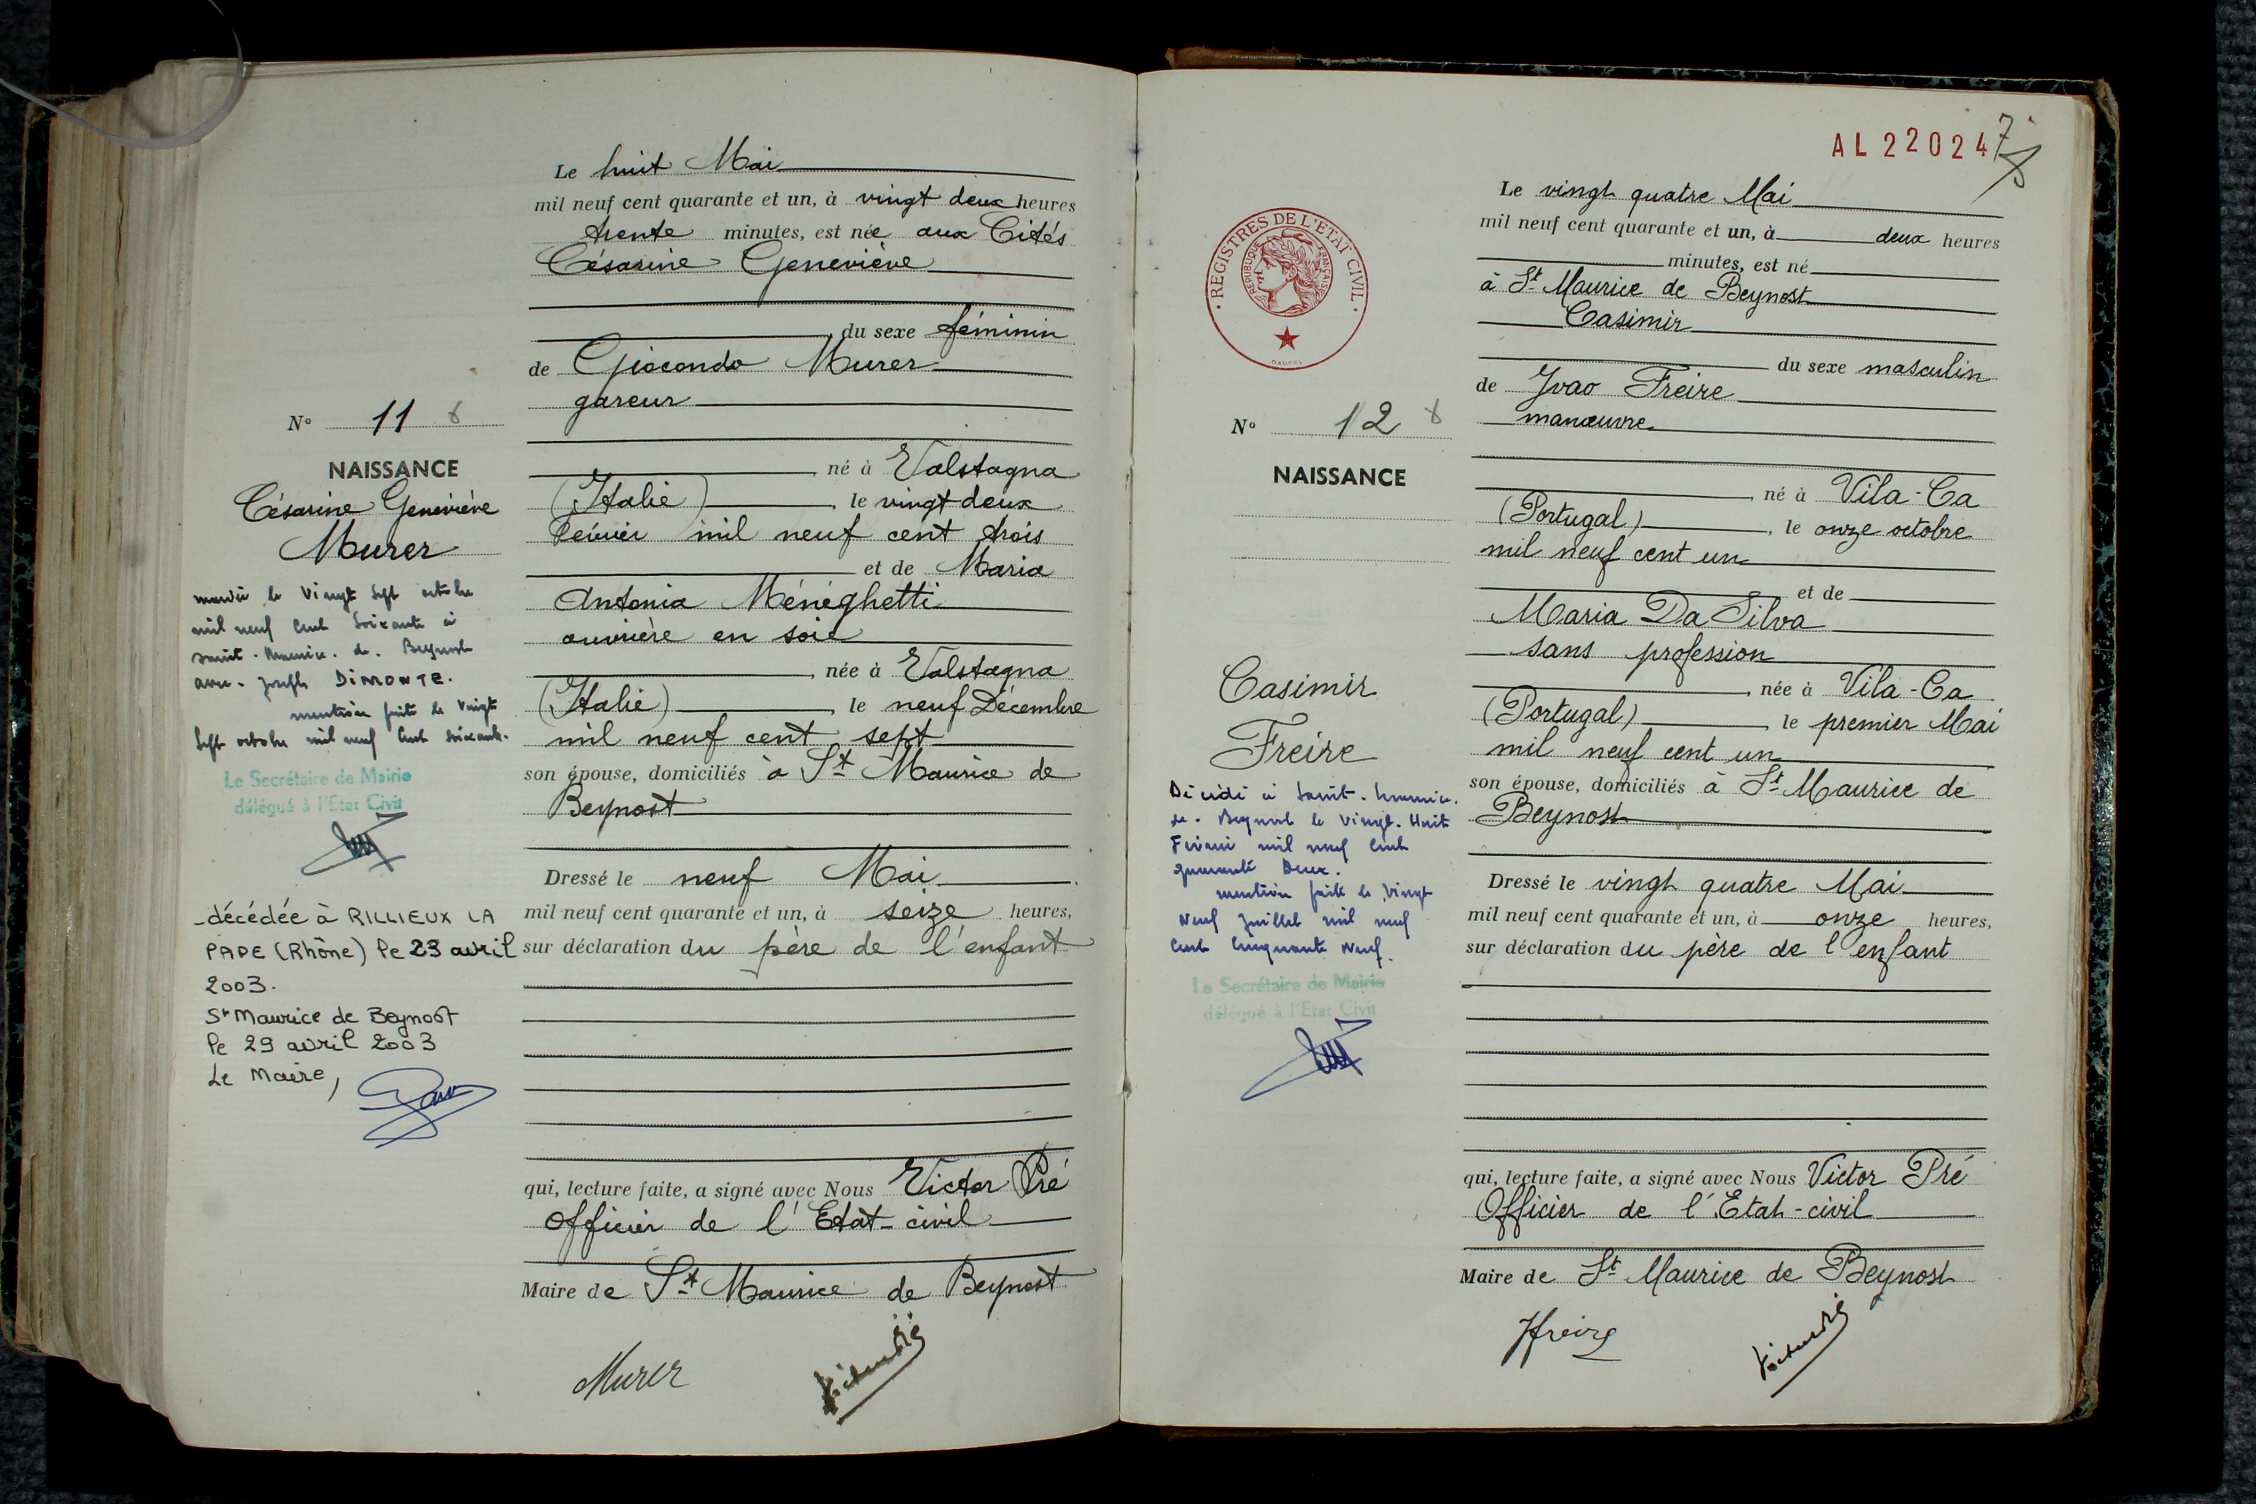 Le huit Mai
mil neuf cent quarante et un, à vingt deux heures
trente minutes, est née aux Cités
Césarine Geneviève
du sexe féminin
de Giocondo Murer
gareur
né à Valstagna
(Italie), le vingt deux
Février mil neuf cent trois
et de Maria
Antonia Ménéghetti
ouvrière en soie
née à Valstagna
(Italie), le neuf Décembre
mil neuf cent sept
son épouse, domiciliés à St Maurice de
Beynost
Dressé le neuf Mai
mil neuf cent quarante et un, à seize heures,
sur déclaration du père de l'enfant
qui, lecture faite, a signé avec Nous Victor Pré
Officier de l'Etat-civil
Maire de St Maurice de Beynost
Murer
Victor Pré
N° 11
NAISSANCE
Césarine Geneviève
Murer
mariée le vingt sept octobre
mil neuf cent soixante à
saint-Maurice-de-Beynost
avec-joseph DIMONTE.
mention faite le vingt
sept octobre mil neuf cent soixante.
Le Secrétaire de Mairie
délégué à l'Etat Civil
décédée à RILLIEUX LA
PAPE (Rhône) le 23 avril
2003.
St Maurice de Beynost
le 29 avril 2003
Le Maire,
AL 220247
Le vingt quatre Mai
mil neuf cent quarante et un, à deux heures
minutes, est né
à St Maurice de Beynost
Casimir
du sexe masculin
de Jvao Freire
manœuvre
né à Vila-Ca
(Portugal), le onze octobre
mil neuf cent un
et de
Maria Da Silva
sans profession
née à Vila-Ca
(Portugal), le premier Mai
mil neuf cent un
son épouse, domiciliés à St Maurice de
Beynost
Dressé le vingt quatre Mai
mil neuf cent quarante et un, à onze heures,
sur déclaration du père de l'enfant
qui, lecture faite, a signé avec Nous Victor Pré
Officier de l'Etat-civil
Maire de St Maurice de Beynost
Jfreire
Victor Pré
REGISTRES DE L'ETAT CIVIL
REPUBLIQUE FRANÇAISE
N° 12
NAISSANCE
Casimir
Freire
Décédé à Saint-Maurice-
de-Beynost le vingt-Huit
Février mil neuf cent
quarante Deux.
mention faite le vingt
Neuf juillet mil neuf
cent cinquante Neuf.
Le Secrétaire de Mairie
délégué à l'Etat Civil